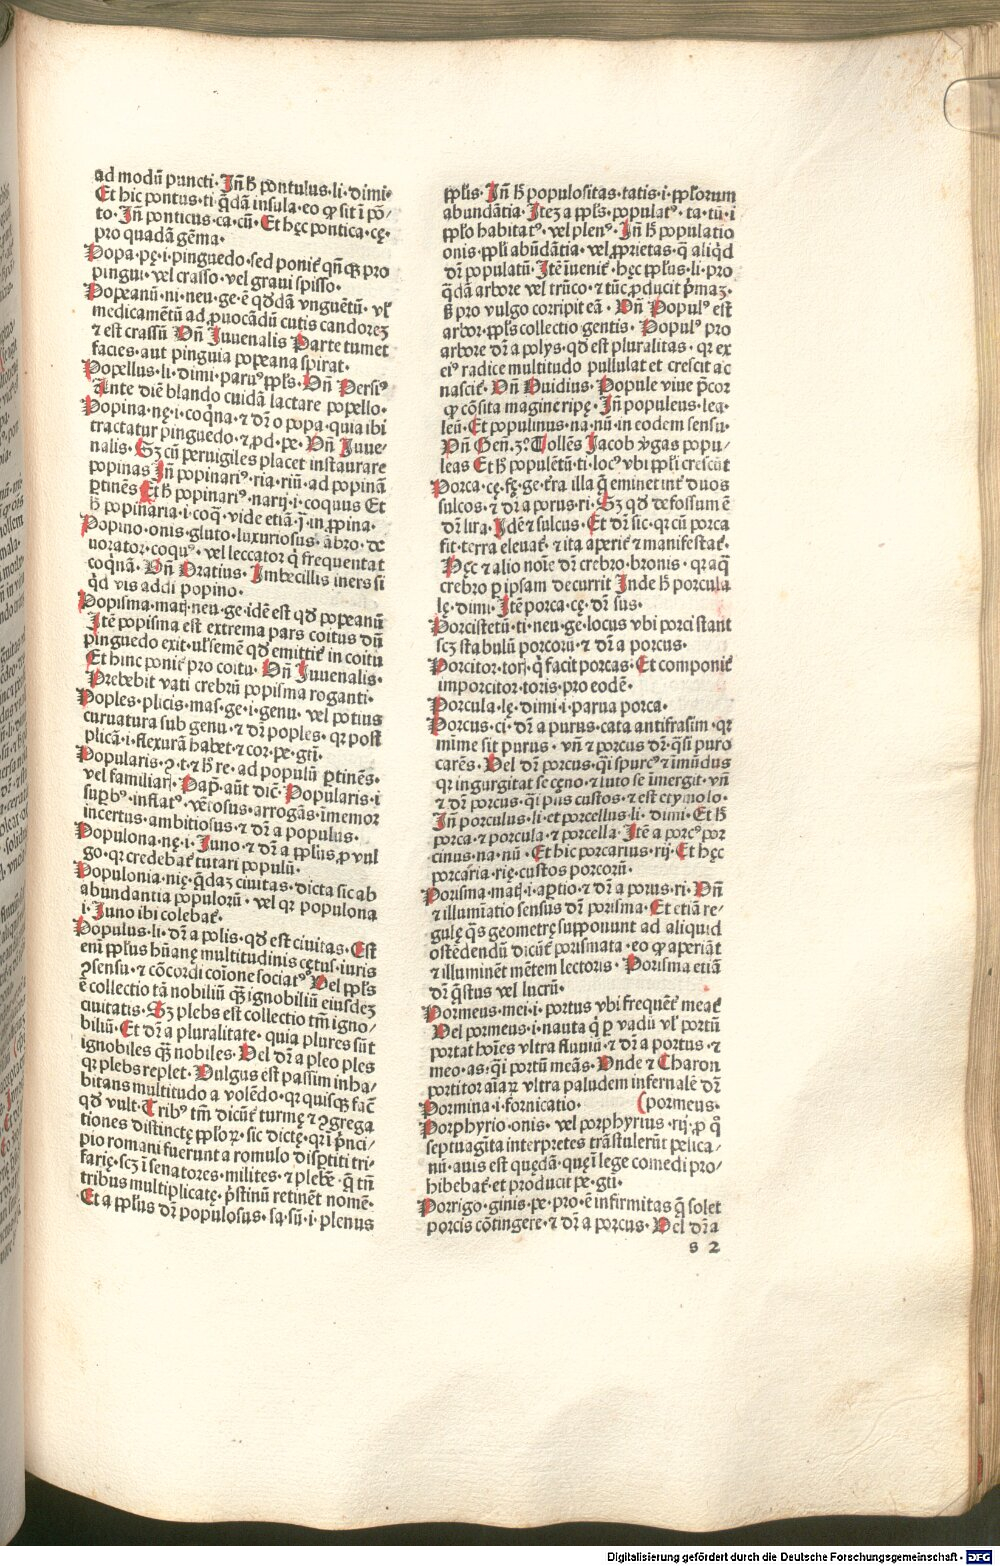 ad modū puncti· Jn̄ h̄ pontulus·li·dimi-
Et hic pontus·ti·q̄dā insula·eo ꝙ sit ī pō/
to· Jn̄ ponticus·ca·cū· Et hęc pontica·cę·
pro quadā gēma·
Popa·pę·i·pinguedo·sed ponit̄ qn̄qꝫ pro
pingui·vel crasso·vel graui spisso·
Popeanū·ni·neu·ge·ē qd̄dā vnguētū·vl̓
medicamētū ad ꝓuocādū cutis candorez
⁊ est crassū Vn̄ Juuenalis Parte tumet
facies·aut pinguia popeana spirat·
Popellus·li·dimi·paruꝰ ppl̓s· Vn̄ Persiꝰ
Ante diē blando cuidā lactare popello·
Popina·nę·i·coq̄na·⁊ dr̄ o popa·quia ibi
tractatur pinguedo·⁊ ꝓd·pe· Vn̄ Juue
nalis· Sꝫ cū peruigiles placet instaurare
popinas Jn̄ popinariꝰ·ria·riū·ad popinā
ꝑtinēs Et h̄ popinariꝰ·narij·i·coquus Et
h̄ popinaria·i·coq̄·vide etiā·j·in ꝓpina·
Popino·onis·gluto·luxuriosus·ābro·de
uorator·coquꝰ·vel leccator q̄ frequentat
coq̄nā· Vn̄ Oratius· Jmbecillis iners si
qd̄ vis addi popino·
Popisma·matꝭ·neu·ge·idē est qd̄ popeanū
Jtē popisma est extrema pars coitus dū
pinguedo exit·ul̓semē qd̄ emittit̄ in coitu
Et hinc ponit̄ pro coitu· Vn̄ Juuenalis·
Prebebit vati crebrū popisma roganti·
Poples·plicis·mas·ge·i·genu·vel potius
curuatura sub genu·⁊ dr̄ poples·qꝛ post
plicā·i·flexurā habet·⁊ cor·pe·gti̅·
Popularis·ꝯ·t·⁊ h̄ re·ad populū ꝑtinēs·
vel familiarꝭ· Pap̄·aūt dic̄· Popularis·i
suꝑbꝰ·inflatꝰ·vētosus·arrogās·īmemor
incertus·ambitiosus·⁊ dr̄ a populus·
Populona·nę·i· Juno·⁊ dr̄ a ppl̓us·ꝓ vul
go·qꝛ credebat̄ tutari populū·
Populonia·nię·q̄daz ciuitas·dicta sic ab
abundantia populorū·vel qꝛ populona
i· Juno ibi colebat̄·
Populus·li·dr̄ a polis·qd̄ est ciuitas· Est
enī ppl̓us hūanę multitudinis cętus·iuris
ꝯsensu·⁊ cōcordi cōione sociatꝰ Vel ppl̓s
ē collectio tā nobiliū qꝫ ignobiliū eiusdez
ciuitatis· Sꝫ plebs est collectio tm̄ igno/
biliū· Et dr̄ a pluralitate·quia plures sūt
ignobiles qꝫ nobiles· Vel dr̄ a pleo ples
qꝛ plebs replet· Vulgus est passim inha/
bitans multitudo a volēdo·qꝛ quisqꝫ fac̄
qd̄ vult· Tribꝰ tm̄ dicūt̄ turmę ⁊ ꝯgrega
tiones distinctę ppl̓oꝝ·sic dictę·qꝛ ī p̄nci/
pio romani fuerunt a romulo disꝑtiti tri-
farię·scꝫ ī senatores·milites·⁊ plebē·q̄ tn̄
tribus multiplicatę·p̄stinū retinēt nomē·
Et a ppl̓us dr̄ populosus·sa·sū·i·plenus
ppl̓is· Jn̄ h̄ populositas·tatis·i·ppl̓orum
abundātia· Jtez a ppl̓s·populatꝰ·ta·tū·i
ppl̓o habitatꝰ·vel plenꝰ· Jn̄ h̄ populatio
onis·ppl̓i abūdātia·vel ꝓprietas·q̄ aliqd̄
dr̄ populatū· Jtē īuenit̄·hęc ppl̓us·li·pro
q̄dā arbore vel trūco·⁊ tūc ꝓducit p̄maꝫ·
sꝫ pro vulgo corripit eā· Vn̄ Populꝰ est
arbor·ppl̓s collectio gentis· Populꝰ pro
arbore dr̄ a polys·qd̄ est pluralitas·qꝛ ex
eiꝰ radice multitudo pullulat et crescit ac
nascit̄· Vn̄ Ouidius· Popule viue p̄cor
ꝙ cōsita margine ripę· Jn̄ populeus·lea·
leū· Et populinus·na·nū·in eodem sensu·
Vn̄ Gen̄·3ꝰ· Tollēs Jacob v̓gas popu/
leas Et h̄ populētū·ti·locꝰ vbi ppl̓i crescūt
Porca·cę·fę·ge·t̓ra illa q̄ eminet int̄ duos
sulcos·⁊ dr̄ a porus·ri· Sꝫ qd̄ defossum ē
dr̄ lira· Jdē ⁊ sulcus· Et dr̄ sic·qꝛ cū porca
fit·terra eleuat̄·⁊ ita aperit̄ ⁊ manifestat̄·
Hęc ⁊ alio noīe dr̄ crebro·bronis·qꝛ aq̄
crebro ꝑ ipsam decurrit Jnde h̄ porcula
lę·dimi· Jtē porca·cę·dr̄ sus·
Porcistetū·ti·neu·ge·locus vbi porci stant
scꝫ stabulū porcorū·⁊ dr̄ a porcus·
Porcitor·torꝭ·q̄ facit porcas· Et componit̄
imporcitor·toris·pro eodē·
Porcula·lę·dimi·i·parua porca·
Porcus·ci·dr̄ a purus·cata antifrasim·qꝛ
mime sit purus·vn̄ ⁊ porcus dr̄·qͣsi puro
carēs· Vel dr̄ porcus·qͣi spurcꝰ ⁊ īmūdus
qꝛ ingurgitat se cęno·⁊ luto se īmergit·vn̄
⁊ dr̄ porcus·qͣi pius custos·⁊ est etymolo·
Jn̄ porculus·li·et porcellus·li·dimi· Et h̄
porca·⁊ porcula·⁊ porcella· Jtē a porcꝰ por
cinus·na·nū· Et hic porcarius·rij· Et hęc
porcaria·rię·custos porcorū·
Porisma·matꝭ·i·aꝑtio·⁊ dr̄ a porus·ri· Vn̄
⁊ illumīatio sensus dr̄ porisma· Et etiā re-
gulę q̄s geometrę supponunt ad aliquid
ostēdendū dicūt̄ porismata·eo ꝙ aperiāt
⁊ illuminēt mētem lectoris· Porisma etiā
dr̄ q̄stus vel lucrū·
Pormeus·mei·i·portus vbi frequēt̄ meat̄
Vel pormeus·i·nauta q̄ ꝑ vadū vl̓ portū
portat hoīes vltra fluuiū·⁊ dr̄ a portus·⁊
meo·as·qͣi portū meās· Vnde ⁊ Charon
portitor aīaꝝ vltra paludem infernalē dr̄
Pormina·i·fornicatio· (pormeus·
Porphyrio·onis·vel porphyrius·rij·ꝓ q̄
septuagīta interpretes trāstulerūt pelica/
nū·auis est quędā·quę ī lege comedi pro/
hibebat̄·et producit pe·gti̅·
Porrigo·ginis·pe·pro·ē infirmitas q̄ solet
porcis cōtingere·⁊ dr̄ a porcus· Vel dr̄ a
s 2
Digitalisierung gefördert durch die Deutsche Forschungsgemeinschaft - DFG